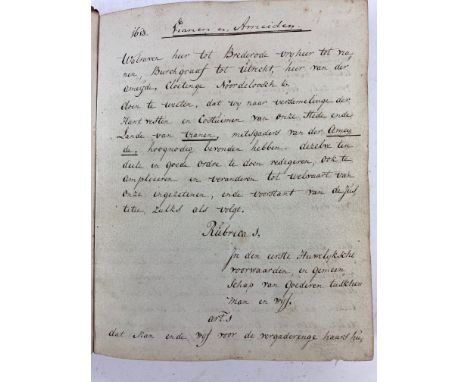 1613. Vianen en Ameiden.
Walraven heer tot Brederode vryheer tot via-
nen, Burchgraaf tot Utrecht, heer van der
ameyde, Cloetinge Noordeloosch &.
doen te weten, dat wy naar versamelinge der
Hant vesten en Costuimen van onze Stede ende
Lande van Vianen, mitsgaders van der Amey
de, hoognodig bevonder hebben. dezelve ten
deele in goede ordre te doen redegeren, ook te
ampliceren en veranderen tot welvaart van
onze ingezetenen, ende voorstant van de Jus
titie, Zulks als volgt.
Rubrica 1.
In den eerste Huwelyksche
voorwaarden, en Gemeen
Schap van Goederen tusschen
Man en wyf.
art. 1
dat Man ende wyf voor de vergaderenge haars hu,